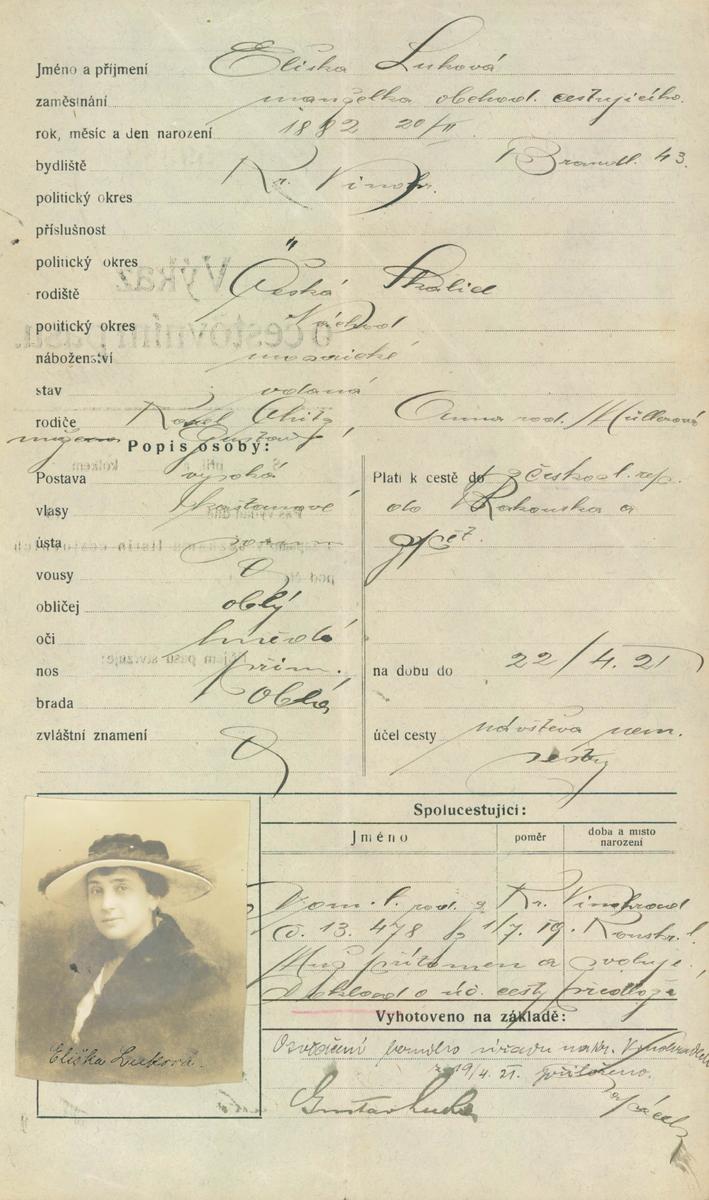 Jméno a příjmení Eliška Luková
zaměstnání manželka obchod. cestujícího.
rok, měsíc a den narození 1882 20/II.
bydliště Kr. Vinohr. Brandl. 43.
politický okres
příslušnost "
politický okres
rodiště Česká Skalice
politický okres Náchod
náboženství mosaické
stav vdaná
rodiče Karel Anna roz. Müllerová
Gustav
Popis osoby:
Postava vysoká
vlasy kaštanové
ústa
vousy
obličej oblý
oči hnědé
nos přím.
brada oblá
zvláštní znamení
Platí k cestě do z českosl. rep.
do Rakouska a
zpět.
na dobu do 22/4. 21
účel cesty návštěva nem.
sestry
Spolucestující:
Jméno poměr doba a místo narození
Dom. l. Kr. Vinohrad
č. 13.478 1/7. 19.
Muž přítomen a svoluje.
Doklad o úč. cesty předložen
Vyhotoveno na základě:
Osvědčení úřadu na Kr. Vinohradech
z 19/4. 21. přiloženo.
Gustav Luka
Eliška Luková.
Výkaz
o cestovním pasu.